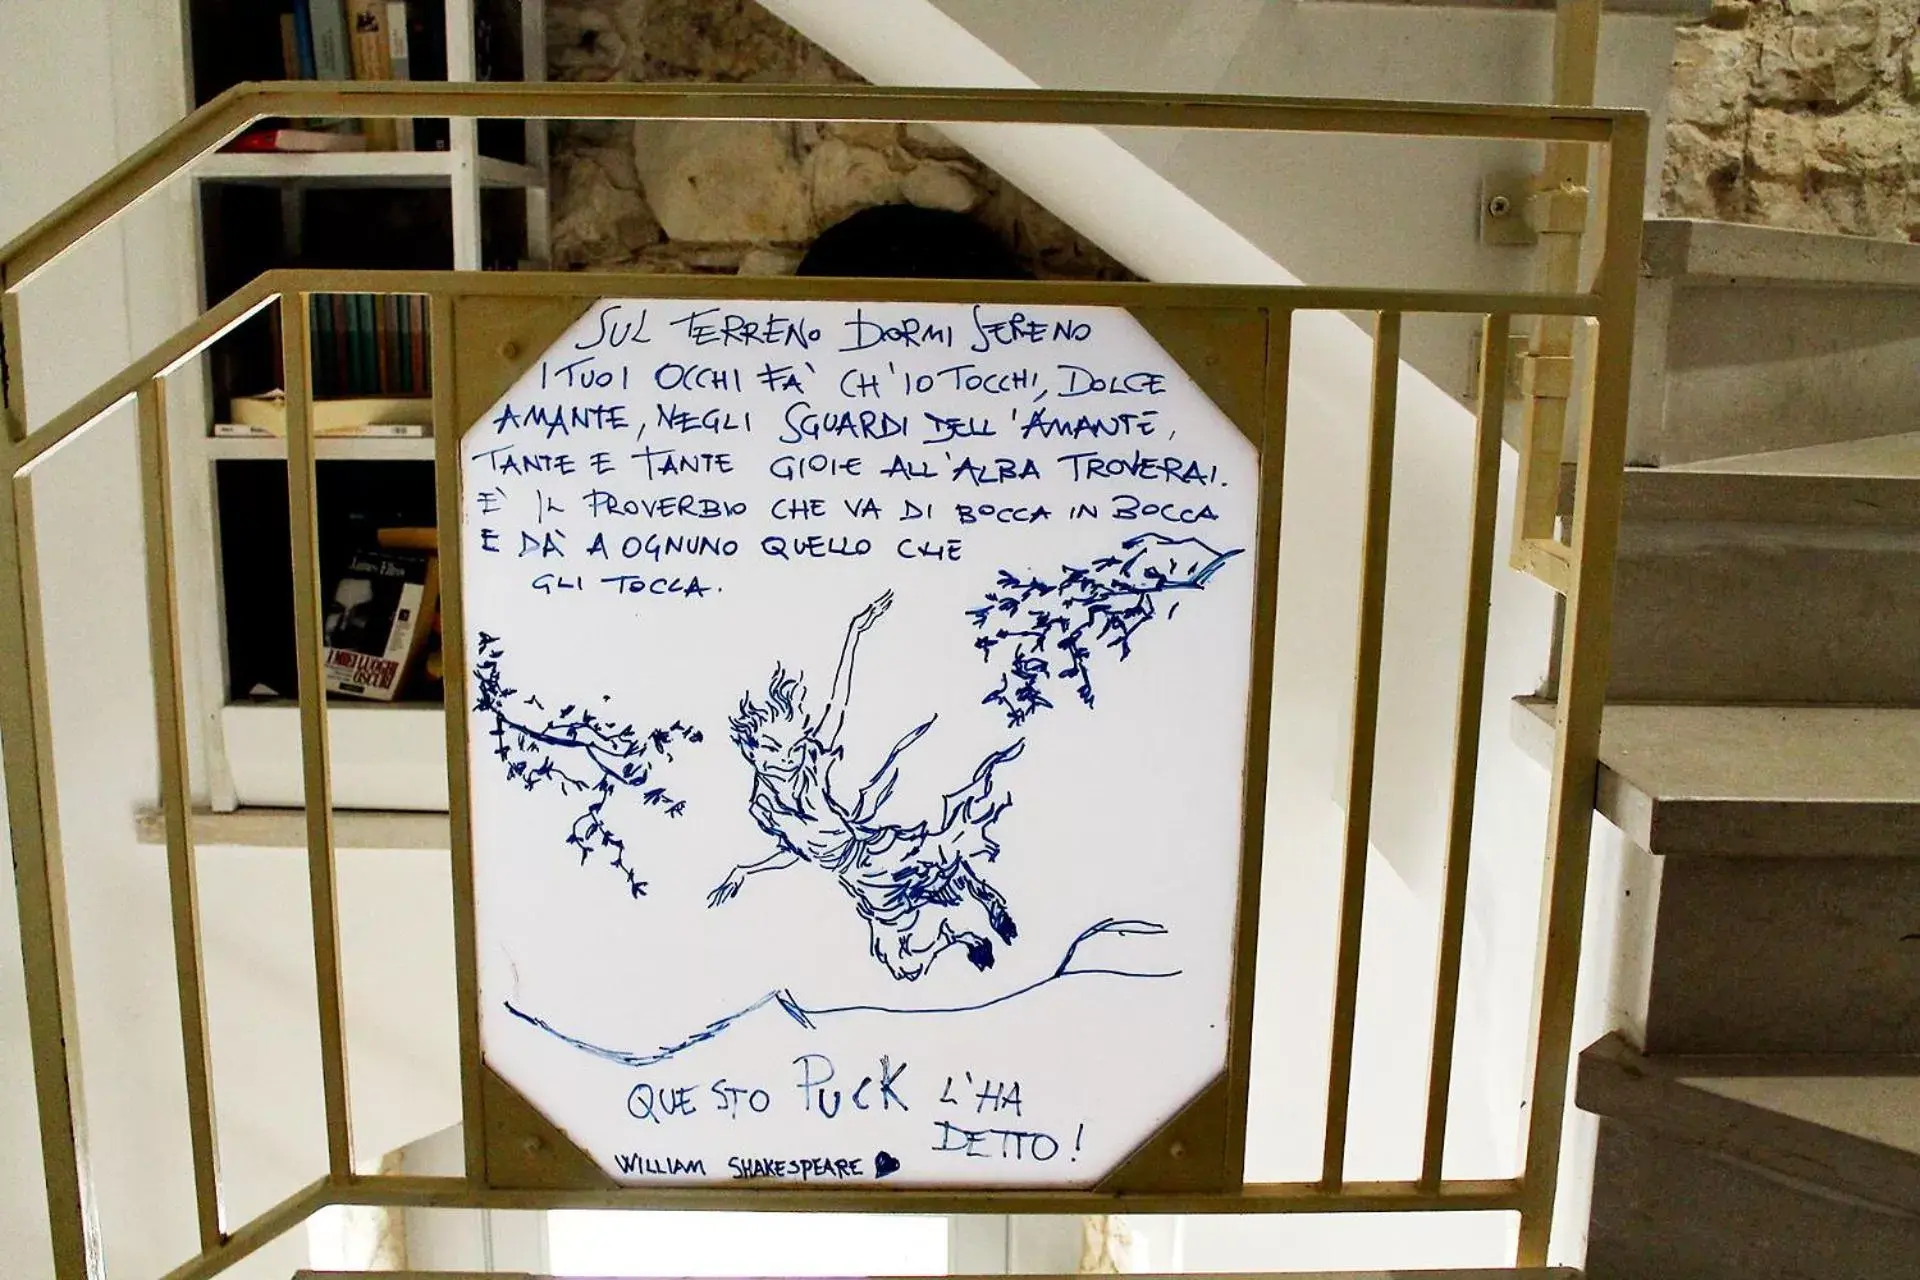 James Ellroy
I MIEI LUOGHI
OSCURI
SUL TERRENO DORMI SERENO
I TUOI OCCHI FA' CH'IO TOCCHI, DOLCE
AMANTE, NEGLI SGUARDI DELL'AMANTE,
TANTE E TANTE GIOIE ALL'ALBA TROVERAI.
E' IL PROVERBIO CHE VA DI BOCCA IN BOCCA
E DÀ A OGNUNO QUELLO CHE
GLI TOCCA.
QUESTO PUCK L'HA
DETTO!
WILLIAM SHAKESPEARE